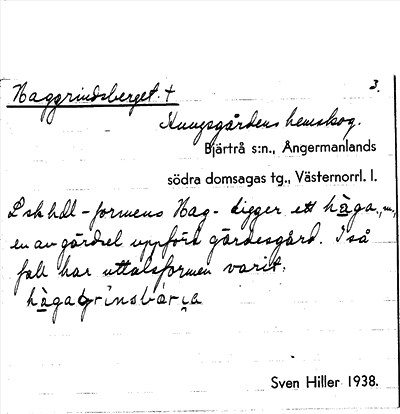 Haggrindsberget. † 3.
Kungsgårdens hemskog.
Bjärtrå s:n., Ångermanlands
södra domsagas tg., Västernorrl. l.
I sk hdl-formens Hag- ligger ett hàga, n.,
en av gärdsel uppförd gärdesgård. I så
fall har uttalsformen varit:
hàgagrinsbárja
Sven Hiller 1938.